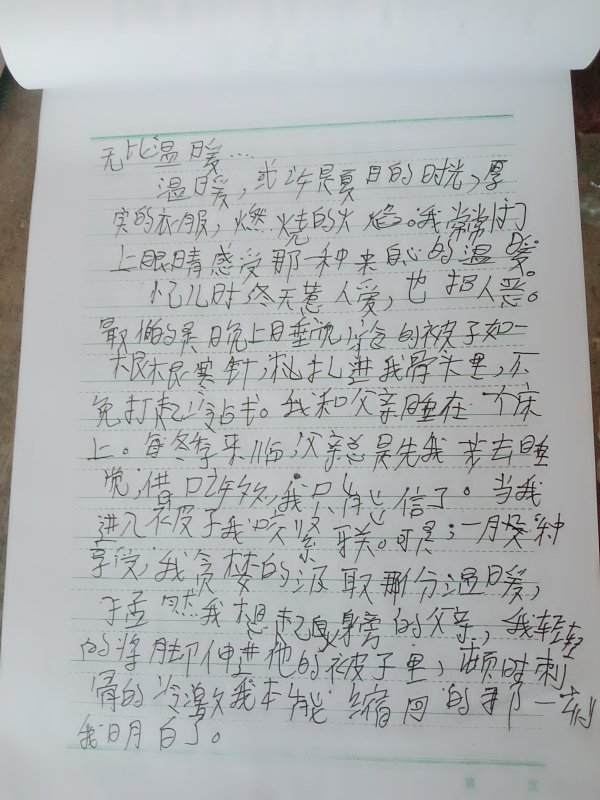 无比温暖…
温暖，或许是夏日的时光，厚
实的衣服，燃烧的火焰。我常常闭
上眼睛感受那一种来自心的温暖。
忆儿时冬天惹人爱，也招人恶。
最惨的是晚上睡觉，冷的被子如一
根根寒针，扎进我骨头里，不
免打起冷占。我和父亲睡在一个床
上。每冬季来临，父亲总是先我一步去睡
觉，借口许多，我只能信了。当我
进入被子我咬紧牙关。可是，一股暖种
享受，我贪婪的汲取那份温暖，
于孟然我想起身旁的父亲，我轻轻
的将脚伸进他的被子里，顿时刺
骨的冷激我本能缩回的那一刻
我明白了。
第 页